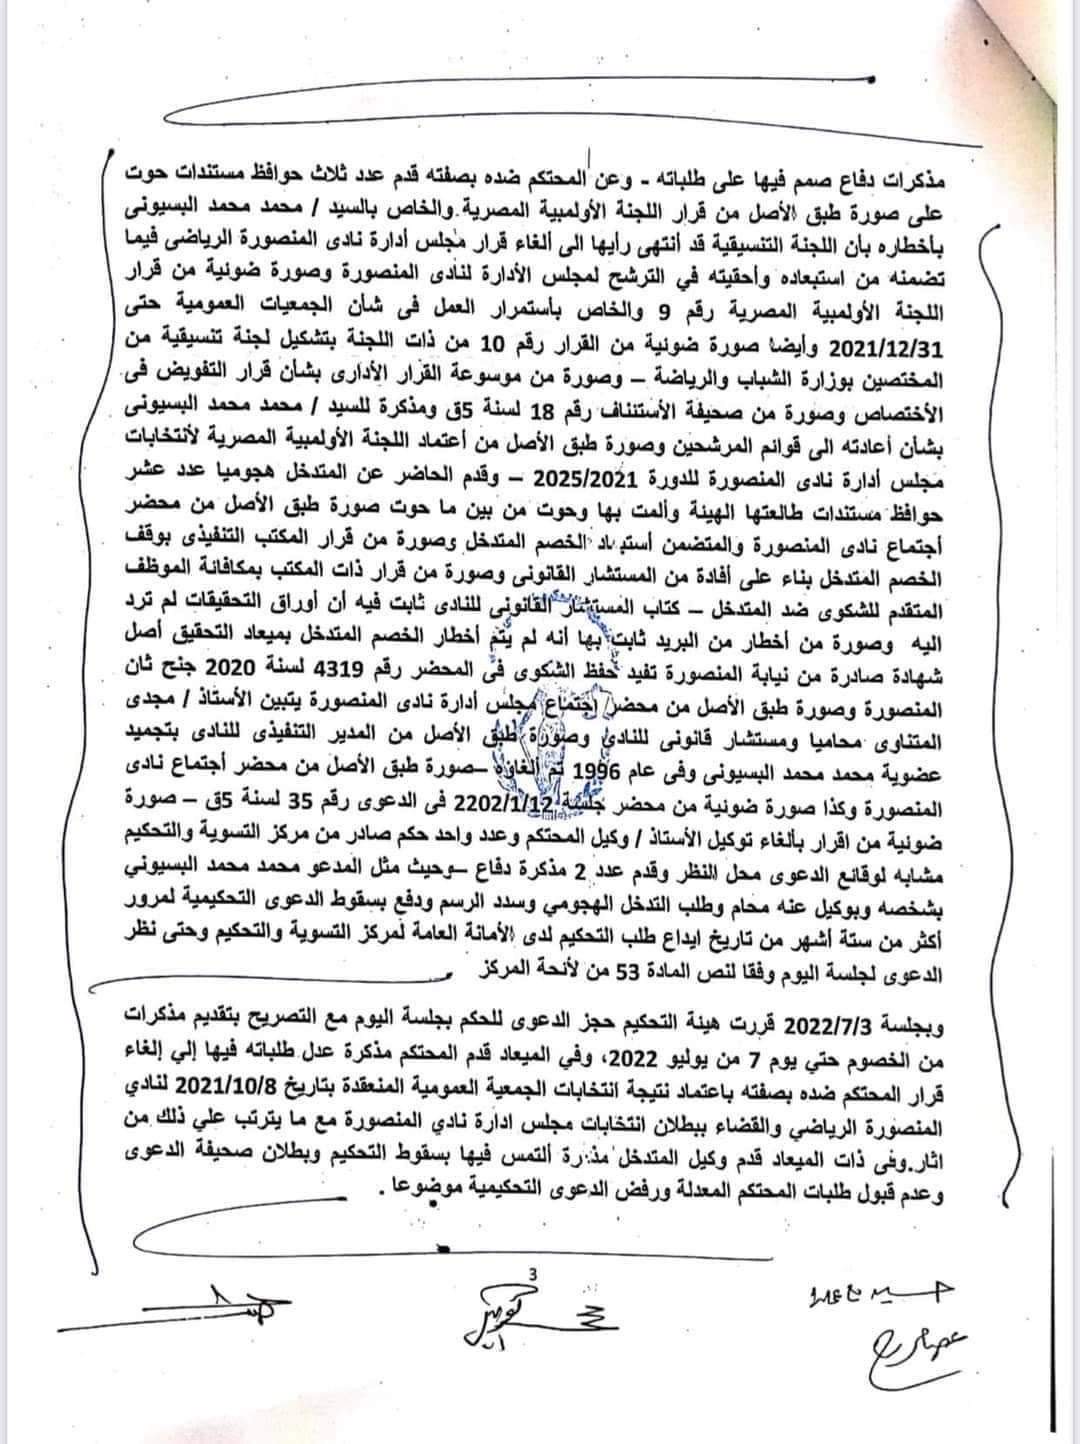 مذكرات دفاع صمم فيها على طلباته - وعن المحتكم ضده بصفته قدم عدد ثلاث حوافظ مستندات حوت
على صورة طبق الأصل من قرار اللجنة الأولمبية المصرية والخاص بالسيد / محمد محمد البسيونى
بأخطاره بأن اللجنة التنسيقية قد أنتهى رأيها الى ألغاء قرار مجلس أدارة نادى المنصورة الرياضى فيما
تضمنه من استبعاده وأحقيته في الترشح لمجلس الأدارة لنادى المنصورة وصورة ضوئية من قرار
اللجنة الأولمبية المصرية رقم 9 والخاص بأستمرار العمل فى شأن الجمعيات العمومية حتى
2021/12/31 وأيضا صورة ضوئية من القرار رقم 10 من ذات اللجنة بتشكيل لجنة تنسيقية من
المختصين بوزارة الشباب والرياضة – وصورة من موسوعة القرار الأدارى بشأن قرار التفويض فى
الأختصاص وصورة من صحيفة الأستئناف رقم 18 لسنة 5ق ومذكرة للسيد / محمد محمد البسيونى
بشأن أعادته الى قوائم المرشحين وصورة طبق الأصل من أعتماد اللجنة الأولمبية المصرية لأنتخابات
مجلس أدارة نادى المنصورة للدورة 2025/2021 – وقدم الحاضر عن المتدخل هجوميا عدد عشر
حوافظ مستندات طالعتها الهيئة وألمت بها وحوت من بين ما حوت صورة طبق الأصل من محضر
أجتماع نادى المنصورة والمتضمن أستبعاد الخصم المتدخل وصورة من قرار المكتب التنفيذى بوقف
الخصم المتدخل بناء على أفادة من المستشار القانونى وصورة من قرار ذات المكتب بمكافانة الموظف
المتقدم للشكوى ضد المتدخل – كتاب المستشار القانونى للنادى ثابت فيه أن أوراق التحقيقات لم ترد
اليه وصورة من أخطار من البريد ثابت بها أنه لم يتم أخطار الخصم المتدخل بميعاد التحقيق أصل
شهادة صادرة من نيابة المنصورة تفيد حفظ الشكوى فى المحضر رقم 4319 لسنة 2020 جنح ثان
المنصورة وصورة طبق الأصل من محضر اجتماع مجلس أدارة نادى المنصورة يتبين الأستاذ / مجدى
المتناوى محاميا ومستشار قانونى للنادى وصورة طبق الأصل من المدير التنفيذى للنادى بتجميد
عضوية محمد محمد البسيونى وفى عام 1996 تم ألغاؤه –صورة طبق الأصل من محضر أجتماع نادى
المنصورة وكذا صورة ضوئية من محضر جلسة 2202/1/12 فى الدعوى رقم 35 لسنة 5ق – صورة
ضوئية من اقرار بألغاء توكيل الأستاذ / وكيل المحتكم وعدد واحد حكم صادر من مركز التسوية والتحكيم
مشابه لوقائع الدعوى محل النظر وقدم عدد 2 مذكرة دفاع –وحيث مثل المدعو محمد محمد البسيوني
بشخصه وبوكيل عنه محام وطلب التدخل الهجومي وسدد الرسم ودفع بسقوط الدعوى التحكيمية لمرور
أكثر من ستة أشهر من تاريخ ايداع طلب التحكيم لدى الأمانة العامة لمركز التسوية والتحكيم وحتى نظر
الدعوى لجلسة اليوم وفقا لنص المادة 53 من لأئحة المركز
وبجلسة 2022/7/3 قررت هيئة التحكيم حجز الدعوى للحكم بجلسة اليوم مع التصريح بتقديم مذكرات
من الخصوم حتي يوم 7 من يوليو 2022، وفي الميعاد قدم المحتكم مذكرة عدل طلباته فيها إلي إلغاء
قرار المحتكم ضده بصفته باعتماد نتيجة انتخابات الجمعية العمومية المنعقدة بتاريخ 2021/10/8 لنادي
المنصورة الرياضي والقضاء ببطلان انتخابات مجلس ادارة نادي المنصورة مع ما يترتب علي ذلك من
اثار.وفى ذات الميعاد قدم وكيل المتدخل مذكرة ألتمس فيها بسقوط التحكيم وبطلان صحيفة الدعوى
وعدم قبول طلبات المحتكم المعدلة ورفض الدعوى التحكيمية موضوعا .
3